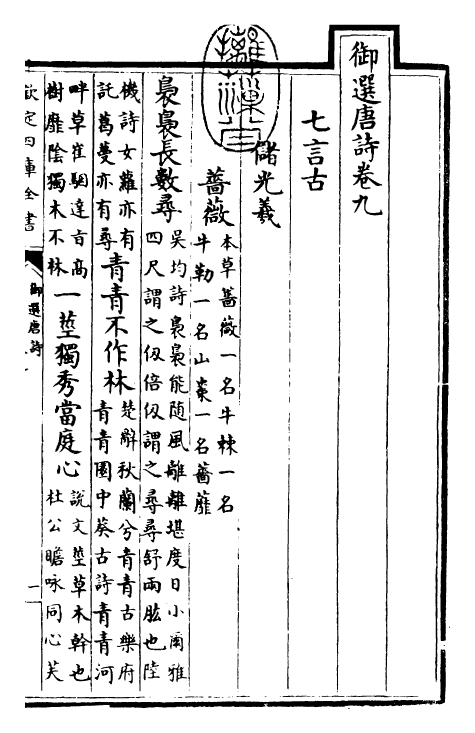 御選唐詩卷九
七言古
儲光羲
薔薇
本草薔薇一名牛棘一名
牛勒一名山棗一名薔蘼
裊裊長數尋
吳均詩裊裊能隨風離離堪度日小爾雅
四尺謂之仭倍仭謂之尋尋舒兩肱也陸
機詩女蘿亦有
託葛蔓亦有尋
青青不作林
楚辭秋蘭兮青青古樂府
青青園中葵古詩青青河
畔草崔駰達旨高
樹靡陰獨木不林
一莖獨秀當庭心
說文莖草木幹也
杜公瞻咏同心芙
欽定四庫全書
御選唐詩
一